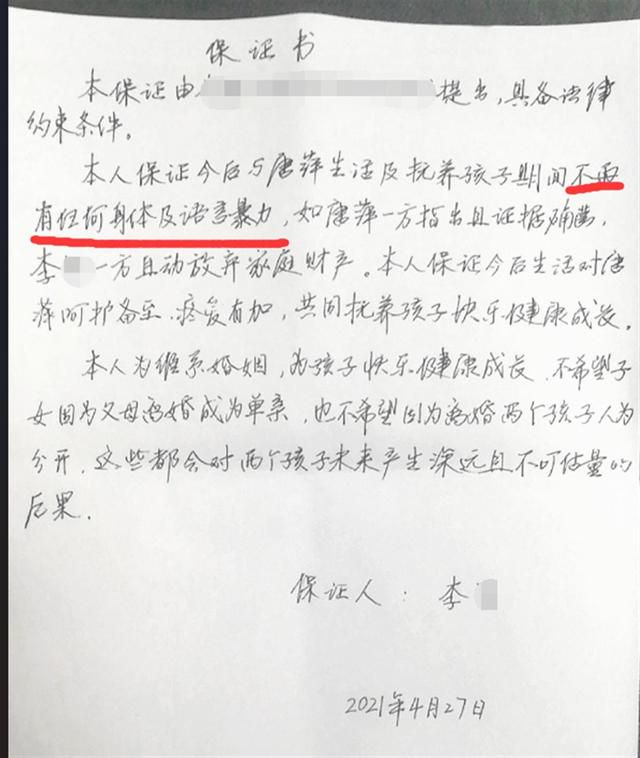 保证书
本保证由 提出,具备法律
约束条件。
本人保证今后与唐萍生活及抚养孩子期间不再
有任何身体及语言暴力,如唐萍一方指出且证据确凿,
李 一方自动放弃家庭财产。本人保证今后生活对唐
萍呵护备至、疼爱有加,共同抚养孩子快乐健康成长。
本人为维系婚姻,为孩子快乐健康成长、不希望子
女因为父母离婚成为单亲,也不希望因为离婚两个孩子人为
分开,这些都会对两个孩子未来产生深远且不可估量的
后果.
保证人:李
2021年4月27日